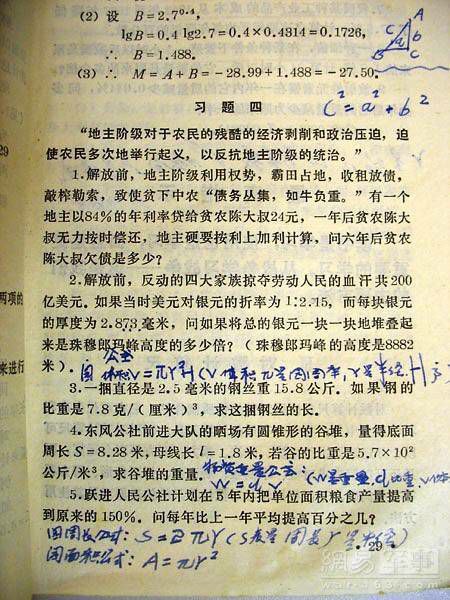 (2) 设 B=2.7⁰·⁴,
lgB=0.4 lg2.7=0.4×0.4314=0.1726,
∴ B=1.488.
(3) ∴ M=A+B=-28.99+1.488=-27.50.
A
C
B
b
C
c²=a²+b²
习题四
“地主阶级对于农民的残酷的经济剥削和政治压迫，迫
使农民多次地举行起义，以反抗地主阶级的统治。”
1.解放前，地主阶级利用权势，霸田占地，收租放债，
敲榨勒索，致使贫下中农“债务丛集，如牛负重。”有一个
地主以84%的年利率贷给贫农陈大叔24元，一年后贫农陈大
叔无力按时偿还，地主硬要按利上加利计算，问六年后贫农
陈大叔欠债是多少？
2.解放前，反动的四大家族掠夺劳动人民的血汗共200
亿美元。如果当时美元对银元的折率为1:2.15，而每块银元
的厚度为2.873毫米，问如果将总的银元一块一块地堆叠起
来是珠穆郎玛峰高度的多少倍？（珠穆郎玛峰的高度是8882
米）.
公式
3.一捆直径是2.5毫米的钢丝重15.8公斤．如果钢的
比重是7.8克/（厘米）³，求这捆钢丝的长．
4.东风公社前进大队的晒场有圆锥形的谷堆，量得底面
周长S=8.28米，母线长l=1.8米，若谷的比重是5.7×10²
公斤/米³，求谷堆的重量.
W=d.V
5.跃进人民公社计划在5年内把单位面积粮食产量提高
到原来的150%．问每年比上一年平均提高百分之几？
圆周长公式: S=2πr
圆面积公式: A=πr²
·29·
29
两项的
来进行
網易军事
war.163.com